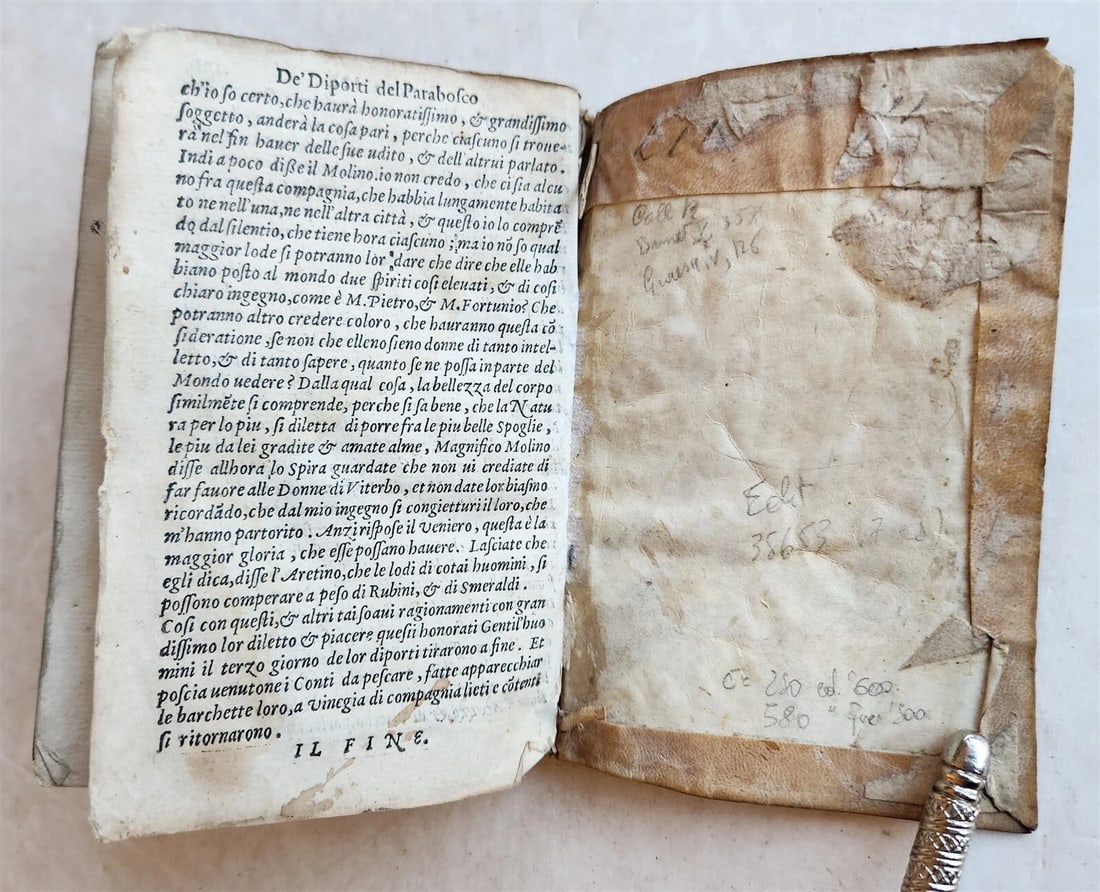 De' Diporti del Parabosco
ch'io so certo, che haurà honoratißimo, & grandißimo
soggetto, anderà la cosa pari, perche ciascuno si troue-
rà nel fin hauer delle sue udito, & dell'altrui parlato.
Indi a poco diße il Molino. io non credo, che ci sia alcu
no fra questa compagnia, che habbia lungamente habita
to ne nell'una, ne nell'altra città, & questo io lo comprẽ
do dal silentio, che tiene hora ciascuno; ma io nõ so qual
maggior lode si potranno lor dare che dire che elle hab
biano posto al mondo due spiriti cosi eleuati, & di cosi
chiaro ingegno, come è M. Pietro, & M. Fortunio? Che
potranno altro credere coloro, che hauranno questa cõ
sideratione, se non che elleno sieno donne di tanto intel-
letto, & di tanto sapere, quanto se ne possa in parte del
Mondo uedere? Dalla qual cosa, la bellezza del corpo
similmẽte si comprende, perche si sa bene, che la Natu
ra per lo piu, si diletta di porre fra le piu belle Spoglie,
le piu da lei gradite & amate alme, Magnifico Molino
disse allhora lo Spira guardate che non ui crediate di
far fauore alle Donne di Viterbo, et non date lor biasmo
ricordãdo, che dal mio ingegno si congietturi il loro, che
m'hanno partorito. Anzi rispose il Veniero, questa è la
maggior gloria, che esse possano hauere. Lasciate che
egli dica, disse l'Aretino, che le lodi di cotai huomini, si
possono comperare a peso di Rubini, & di Smeraldi.
Cosi con questi, & altri tai soaui ragionamenti con gran
dissimo lor diletto & piacere questi honorati Gentil'huo
mini il terzo giorno de lor diporti tirarono a fine. Et
poscia uenutone i Conti da pescare, fatte apparecchiar
le barchette loro, a vinegia di compagnia lieti e cõtenti
si ritornarono.
IL FINE.
Brunet
Graesse, V, 126
Edit
35653
C= 280 ed. '600
580 "